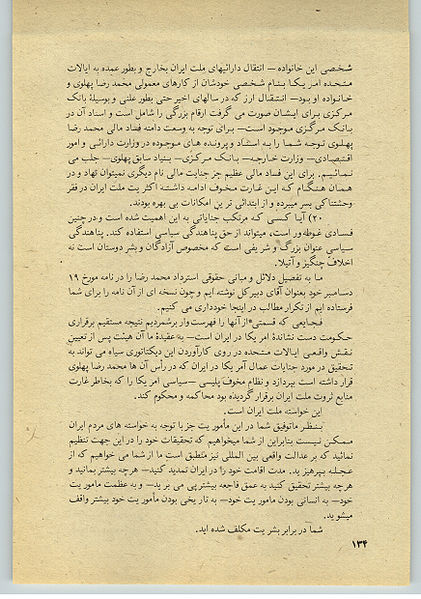 شخصی این خانواده — انتقال دارائیهای ملت ایران بخارج و بطور عمده به ایالات
متحده امریکا بنام شخصی خودشان از کارهای معمولی محمد رضا پهلوی و
خانواده او بود— انتقال ارز که در سالهای اخیر حتی بطور علنی و بوسیلهٔ بانک
مرکزی برای ایشان صورت می گرفت ارقام بزرگی را شامل است و اسناد آن در
بانک مرکزی موجود است— برای توجه به وسعت دامنه فساد مالی محمد رضا
پهلوی توجه شما را به اسناد و پرونده های موجوده در وزارت دارائی و امور
اقتصادی— وزارت خارجه— بانک مرکزی— بنیاد سابق پهلوی— جلب می
نمائیم. برای این فساد مالی عظیم جز جنایت مالی نام دیگری نمیتوان نهاد و در
همان هنگام که این غارت مخوف ادامه داشته اکثریت ملت ایران در فقر
وحشتناکی بسر میبرده و از ابتدائی ترین امکانات بی بهره بودند.
۲۰) آیا کسی که مرتکب جنایاتی به این اهمیت شده است و در چنین
فسادی غوطه‌ور است، میتواند از حق پناهندگی سیاسی استفاده کند. پناهندگی
سیاسی عنوان بزرگ و شریفی است که مخصوص آزادگان و بشر دوستان است نه
اخلاف چنگیز و آتیلا.
ما به تفصیل دلائل و مبانی حقوقی استرداد محمد رضا را در نامه مورخ ۱۹
دسامبر خود بعنوان آقای دبیر کل نوشته ایم و چون نسخه ای از آن نامه را برای شما
فرستاده ایم از تکرار مطالب در اینجا خودداری می کنیم.
فجایعی که قسمتی از آنها را فهرست وار برشمردیم نتیجه مستقیم برقراری
حکومت دست نشاندهٔ امریکا در ایران است— به عقیدهٔ ما آن هیئت پس از تعیین
نقش واقعی ایالات متحده در روی کارآوردن این دیکتاتوری سیاه می تواند به
تحقیق در مورد جنایات عمال آمریکا در ایران که در رأس آن ها محمد رضا پهلوی
قرار داشته است بپردازد و نظام مخوف پلیسی —سیاسی امریکا را که بخاطر غارت
منابع ثروت ملت ایران برقرار گردیده بود محاکمه و محکوم کند.
این خواسته ملت ایران است.
بنظر ما توفیق شما در این مأموریت جز با توجه به خواسته های مردم ایران
ممکن نیست بنابراین از شما میخواهیم که تحقیقات خود را در این جهت تنظیم
نمائید که بر عدالت واقعی بین المللی نیز منطبق است ما از شما می خواهیم که از
عجله بپرهیزید. مدت اقامت خود را در ایران تمدید کنید— هرچه بیشتر بمانید و
هرچه بیشتر تحقیق کنید به عمق فاجعه بیشتر پی می برید— و به عظمت مأموریت
خود— به انسانی بودن مأموریت خود— به تاریخی بودن مأموریت خود بیشتر واقف
میشوید.
شما در برابر بشریت مکلف شده اید.
۱۳۴